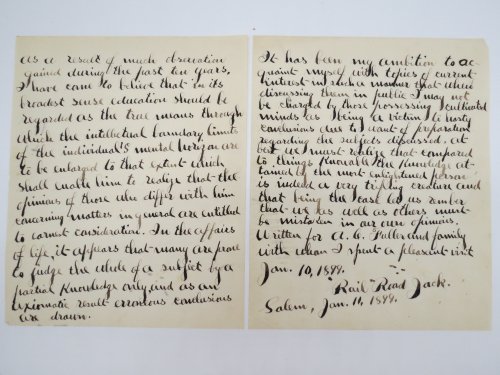 as a result of much observation
gained during the past ten years,
I have come to believe that in its
broadest sense education should be
regarded as the true means through
which the intellectual boundary limits
of the individual's mental horizon are
to be enlarged to that extent which
shall enable him to realize that the
opinions of those who differ with him
concerning matters in general are entitled
to earnest consideration. In the affairs
of life, it appears that many are prone
to judge the whole of a subject by a
partial knowledge only, and as an
axiomatic result erroneous conclusions
are drawn.
It has been my ambition to ac-
quaint myself with topics of current
interest in such a manner that when
discussing them in public I may not
be charged by those possessing cultivated
minds as being a victim to hasty
conclusions due to want of preparation
regarding the subjects discussed. at
best we must realize that compared
to things Knowable the Knowledge at-
tained by the most enlightened person
is indeed a very trifling creature and
that being the case let us remember
that we as well as others must
be mistaken in our own opinions.
Written for A. C. Fuller and family
with whom I spent a pleasant visit
Jan. 10, 1899.
"Rail" Road Jack.
Salem, Jan. 11, 1899.